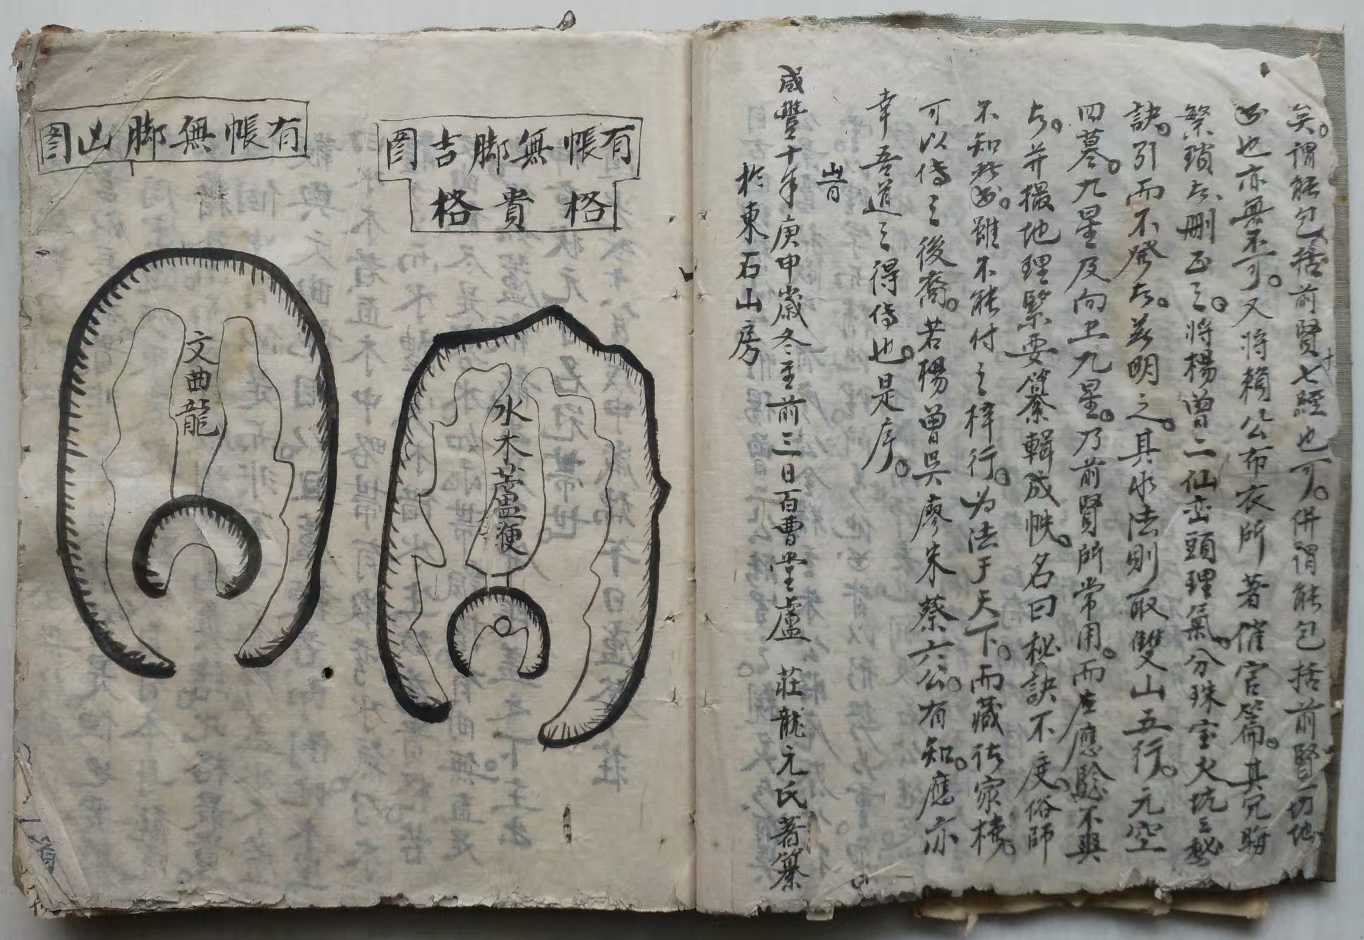 矣。謂能包括前賢七經也可。併謂能包括前賢一切地
書也亦無不可。又將賴公布衣所著催官篇。其冗晦
繁瑣者刪正之。將楊曾二仙巒頭理氣。分珠宝火坑之秘
訣。引而不發者。兹明之。其水法則取雙山五行。元空
四墓。九星及向上九星。乃前賢所常用。而應驗不爽
者。并撮地理緊要纂輯成帙。名曰秘訣不度俗師
不知此書。雖不能付之梓行。为法于天下。而藏於家棧。
可以傳之後裔。若楊曾吳廖朱蔡六公。有知。應亦
幸吾道之得傳也。是序。
旹
咸豐十年庚申歲冬至前三日百曹堂盧 莊龍元氏著纂
於東石山房
有帳無脚吉圖
格貴格
水木蘆鞭
有帳無脚凶圖
文曲龍